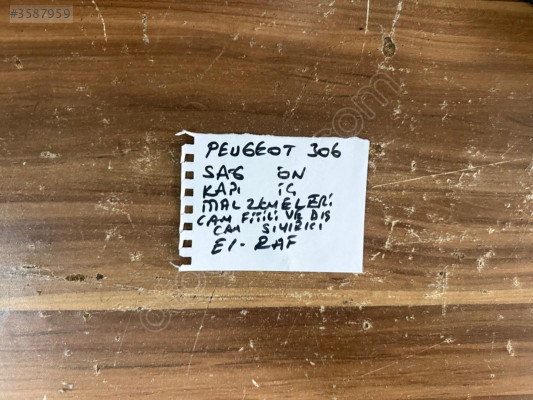 #3587959
PEUGEOT 306
SAĞ ÖN
KAPI İÇ
MALZEMELERİ
CAM FİTİLİ VE DIŞ
CAM SIYIRICI
E1-RAF